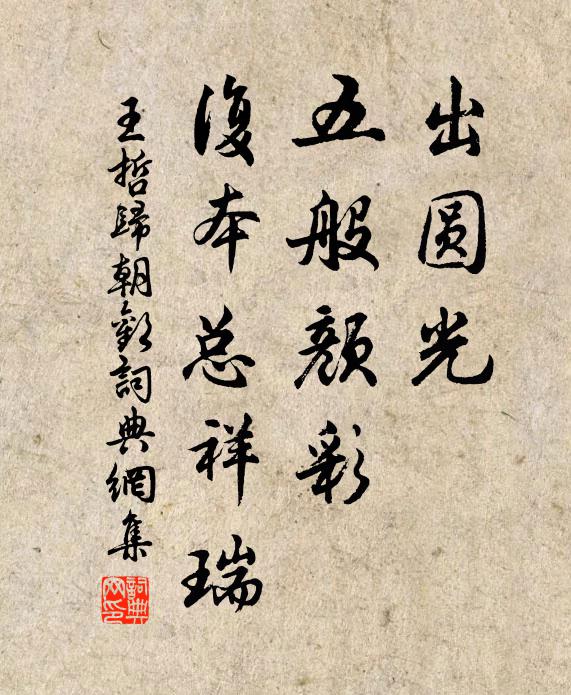 出圆光
五般颜彩
復本总祥瑞
王哲歸朝歡詞典網集
詞典网印